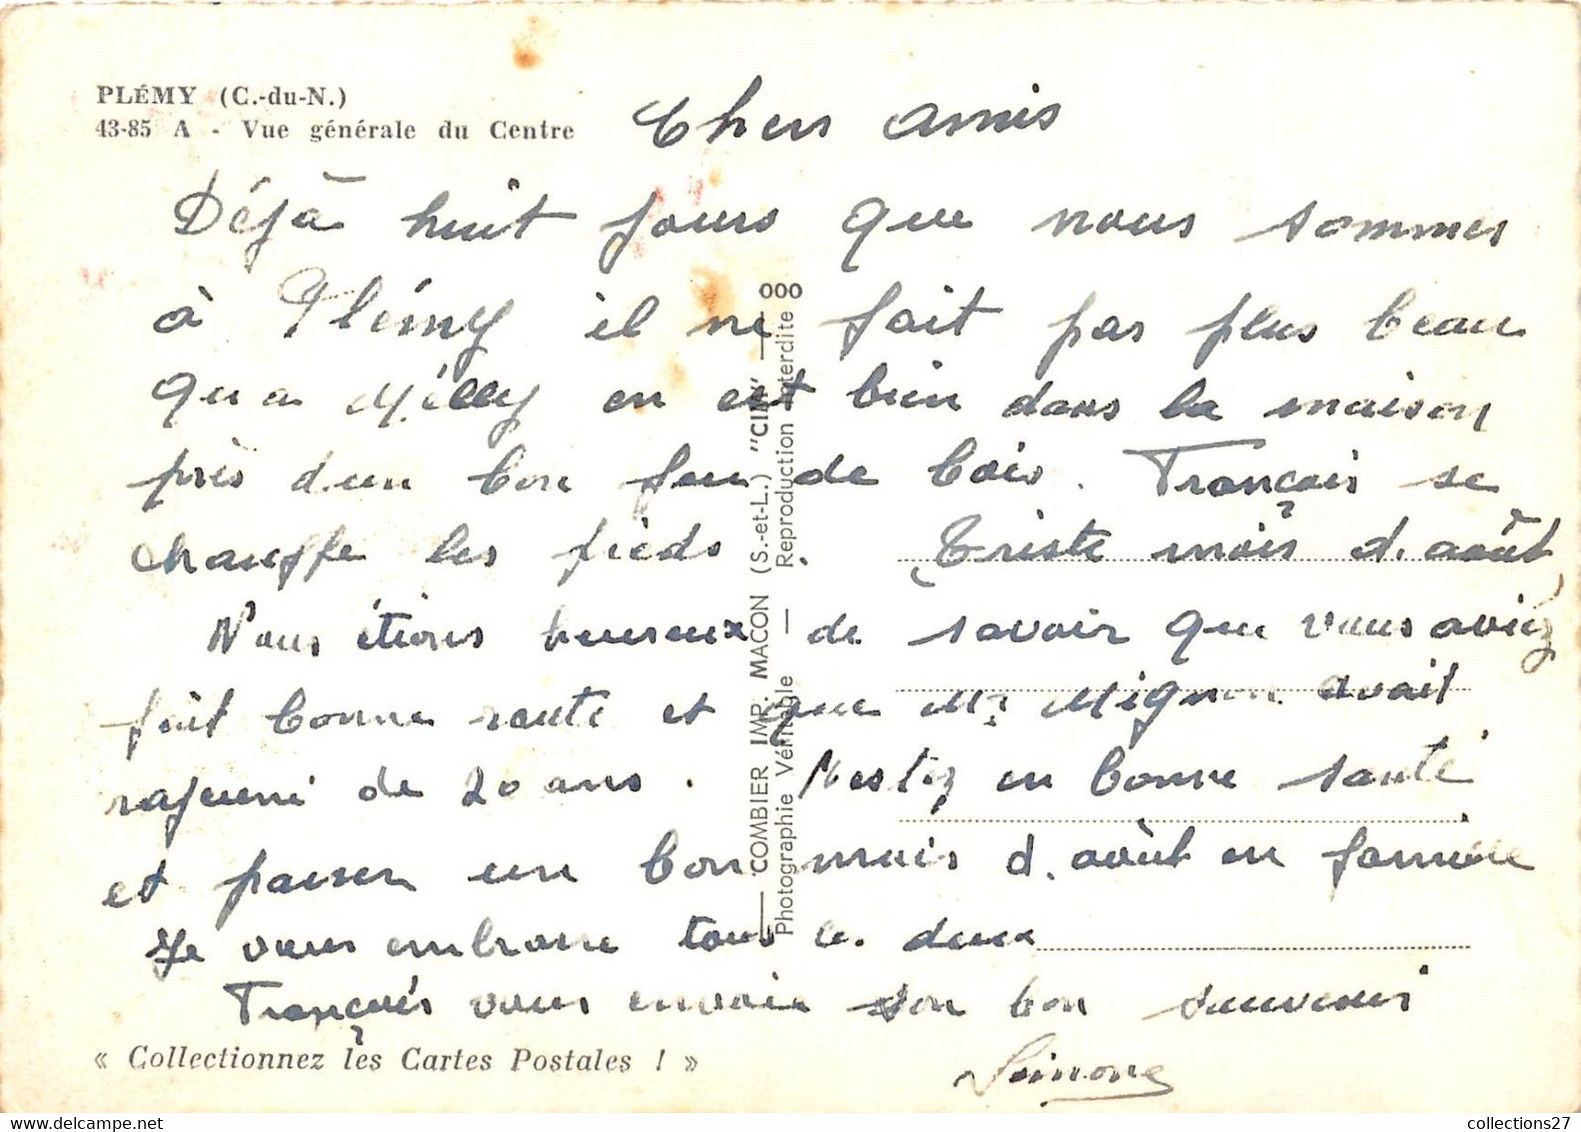 PLÉMY (C.-du-N.)
43-85 A - Vue générale du Centre
Chers amis
Déjà huit jours que nous sommes
à Plémy il ne fait pas plus beau
qu'a Milly on est bien dans la maison
près d'un bon feu de bois. François se
chauffe les pieds. Triste mois d'août
Nous étions heureux de savoir que vous aviez
fait bonne route et que Mr Mignon avait
rajeuni de 20 ans. Restez en bonne santé
et passer un bon mois d'août en famille
Je vous embrasse tous les deux
François vous envoie son bon souvenir
Simone
« Collectionnez les Cartes Postales ! »
000
COMBIER IMP. MACON (S.-et-L.) "CIM"
Photographie Véritable — Reproduction interdite
collections27